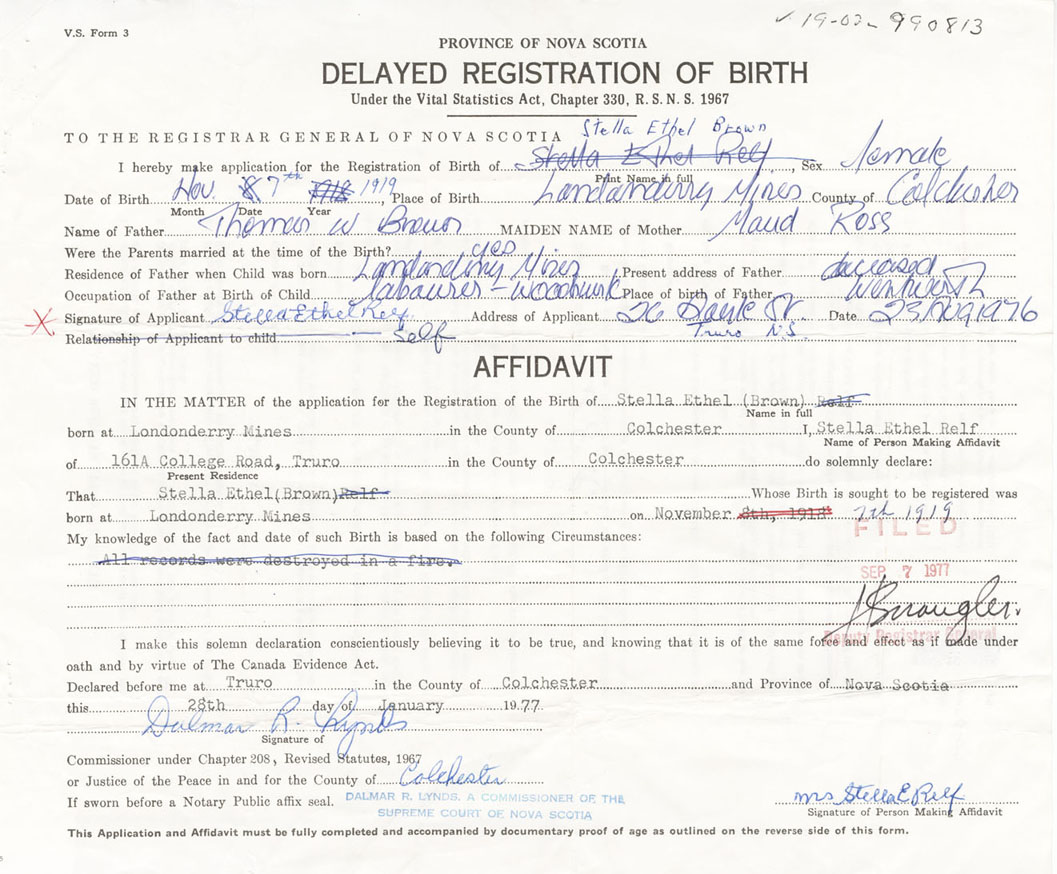 V.S. Form 3
✓ 19-02- 990813
PROVINCE OF NOVA SCOTIA
DELAYED REGISTRATION OF BIRTH
Under the Vital Statistics Act, Chapter 330, R. S. N. S. 1967
TO THE REGISTRAR GENERAL OF NOVA SCOTIA Stella Ethel Brown
I hereby make application for the Registration of Birth of Stella Ethel Relf, Sex female
Print Name in full
Date of Birth Nov. 8 7th 1918 1919, Place of Birth Londonderry Mines County of Colchester
Month Date Year
Name of Father Thomas W Brown MAIDEN NAME of Mother Maud Ross
Were the Parents married at the time of the Birth? yes
Residence of Father when Child was born Londonderry Mines Present address of Father deceased
Occupation of Father at Birth of Child labourer - Place of birth of Father Wentworth
X Signature of Applicant Stella Ethel Relf Address of Applicant 26 St. Date 23 Aug 1976
Truro N.S.
Relationship of Applicant to child Self
AFFIDAVIT
IN THE MATTER of the application for the Registration of the Birth of Stella Ethel (Brown) Relf
Name in full
born at Londonderry Mines in the County of Colchester I, Stella Ethel Relf
Name of Person Making Affidavit
of 161A College Road, Truro in the County of Colchester do solemnly declare:
Present Residence
That Stella Ethel (Brown) Relf Whose Birth is sought to be registered was
born at Londonderry Mines on November 8th, 1918 7th 1919
FILED
My knowledge of the fact and date of such Birth is based on the following Circumstances:
All records were destroyed in a fire.
SEP 7 1977
Deputy Registrar General
I make this solemn declaration conscientiously believing it to be true, and knowing that it is of the same force and effect as if made under
oath and by virtue of The Canada Evidence Act.
Declared before me at Truro in the County of Colchester and Province of Nova Scotia
this 28th day of January 1977
Dalmar R. Lynds
Signature of
Commissioner under Chapter 208, Revised Statutes, 1967
or Justice of the Peace in and for the County of Colchester
If sworn before a Notary Public affix seal. DALMAR R. LYNDS. A COMMISSIONER OF THE
SUPREME COURT OF NOVA SCOTIA
Mrs Stella E Relf
Signature of Person Making Affidavit
This Application and Affidavit must be fully completed and accompanied by documentary proof of age as outlined on the reverse side of this form.